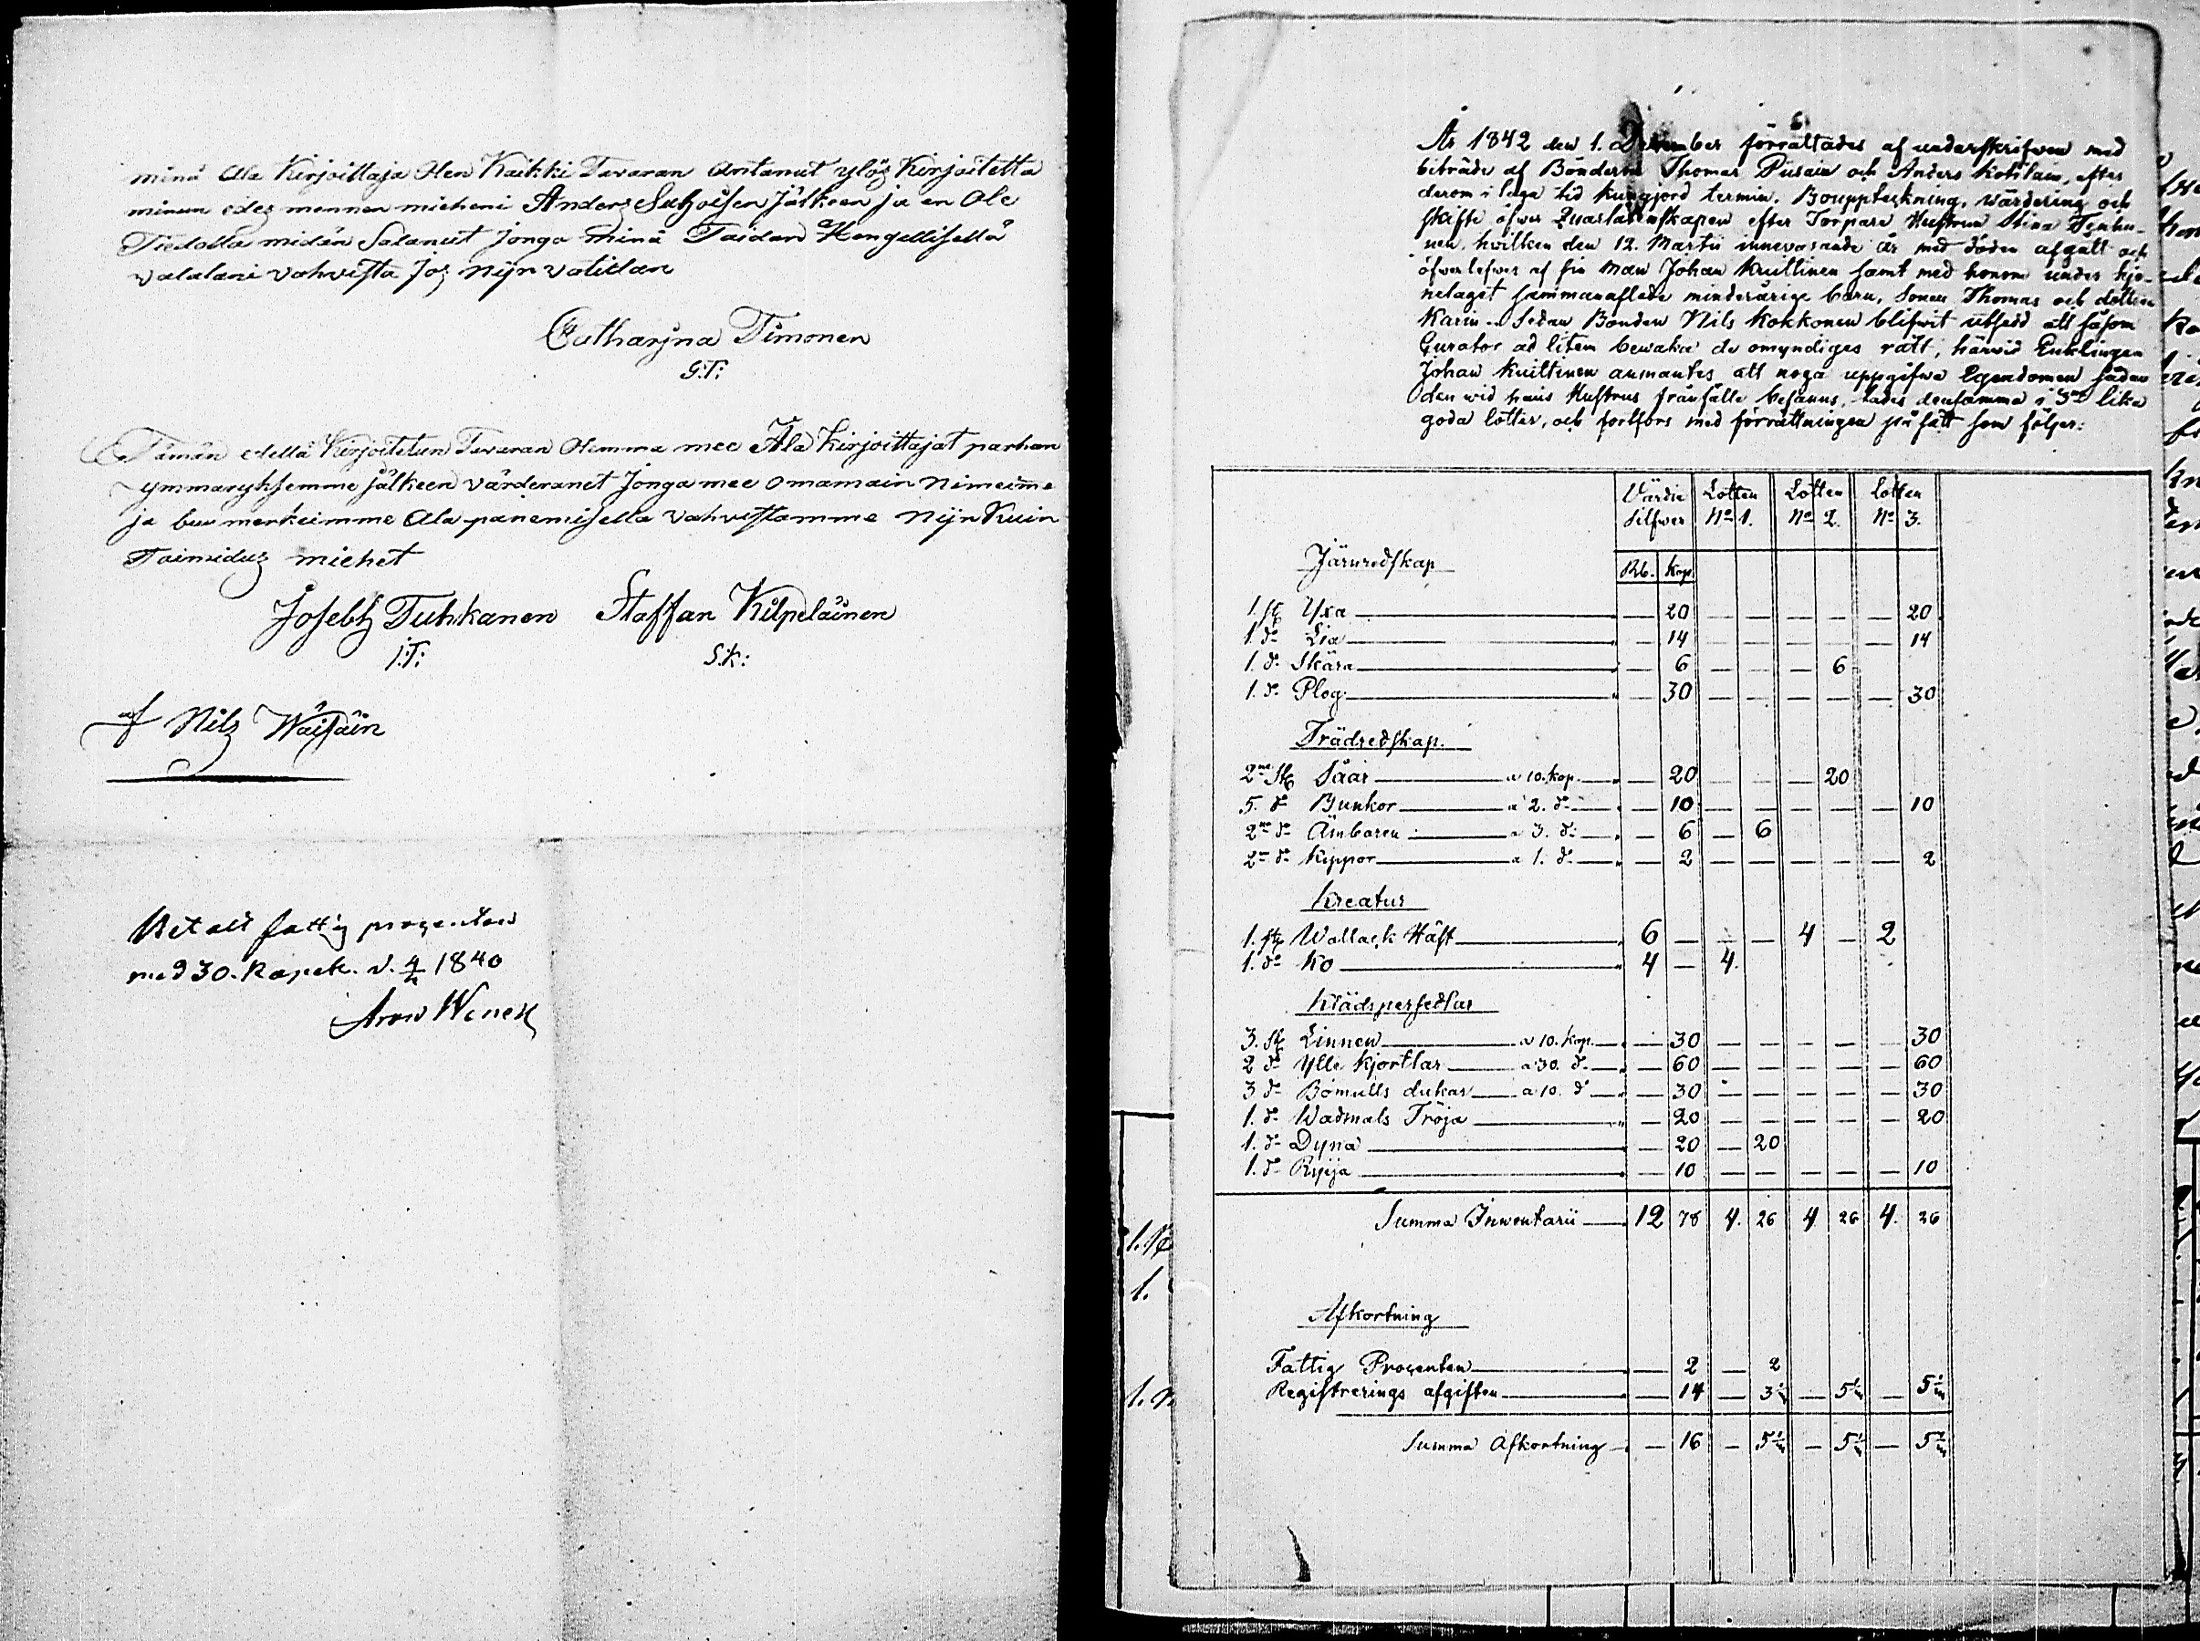 minä Ala Kirjoittaja Olen Kaikki Tavaran Antanut ylös Kirjoitetta
minun edes mennen mieheni Anders Suhoisen Jälkeen ja en Ole
Tiedolla mitän Salanut Jonga minä Taidan Hengellisellä
valalani vahvista Jos nijn vatitan
Catharina Timonen
G:T:
Tämän edellä Kirjoitetun Tavaran Olemma mee Ala Kirjoittajat parhan
ymmaryksemme jälkeen värderanet Jonga mee omamain nimeimme
ja buumerkeimme Ala panemisella vahvistamme Nijn Kuin
Toimidus miehet
Josebh Tuhkanen Staffan Kilpeläinen
J:T: S:K:
af Nils Wäisäin
Betalt fattig procenten
med 30. Kopek. d. 1840
Aron
6.
År 1842 den 1. December förrättades af underskrifwen med
biträde af Bönderne Thomas Piirain och Anders Kotilain, efter
derom i laga tid kungjord termin, Bouppteckning, wärdering och
skifte öfwer Quarlåtenskapen efter Torpare Hustrun Stina Tenhu-
nen, hwilken den 12. Martii innewarande år med döden afgått och
öfwerlefwes af sin Man Johan Kuittinen samt med honom under hjo-
nelaget sammanaflade minderårige barn, Sonen Thomas och dottren
Karin. Sedan Bonden Nils Kokkonen blifwit utsedd att såsom
Curator ad litem bewaka de omyndiges rätt, härwid Enklingen
Johan Kuittinen anmantes att noga uppgifwa Egendomen sådan
den wid hans Hustrus frånfälle befanns, lades densamma i 3ne lika
goda lotter, och fortfors med förrättningen på sätt som följer:
Värdie Lotten Lotten Lotten
Silfwer No 1. No 2. No 3.
Järnredskap Rb. Kop.
1. st Yxa — 20 — — — — — 20
1. do Lia — 14 — — — — — 14
1. do Skära — 6 — — — 6
1. do Plog — 30 — — — — — 30
Trädredskap.
2ne st Såar a 10. kop. — 20 — — — 20
5. do Bunkor a 2. do — 10 — — — — — 10
2ne do Ämbaren a 3. do — 6 — 6
2ne do Kippor a 1. do — 2 — — — — — 2
Kreatur
1. st Wallack Häst 6 — — — 4 — 2
1. do Ko 4 — 4.
Klädspersedlar
3. st Linnen a 10. kop. — 30 — — — — — 30
2 do Ylle Kjortlar a 30. do — 60 — — — — — 60
3 do Bomulls dukar a 10. do — 30 — — — — — 30
1. do Wadmals Tröja — 20 — — — — — 20
1. do Dyna — 20 — 20
1. do Ryija — 10 — — — — — 10
Summa Inwentarii 12 78 4. 26 4. 26 4. 26
Afkortning
Fattig Procenten — 2 — 2
Registrerings afgiften — 14 — 3 1/3 — 5 1/3 — 5 1/3
Summa Afkortning — 16 — 5 1/3 — 5 1/3 — 5 1/3